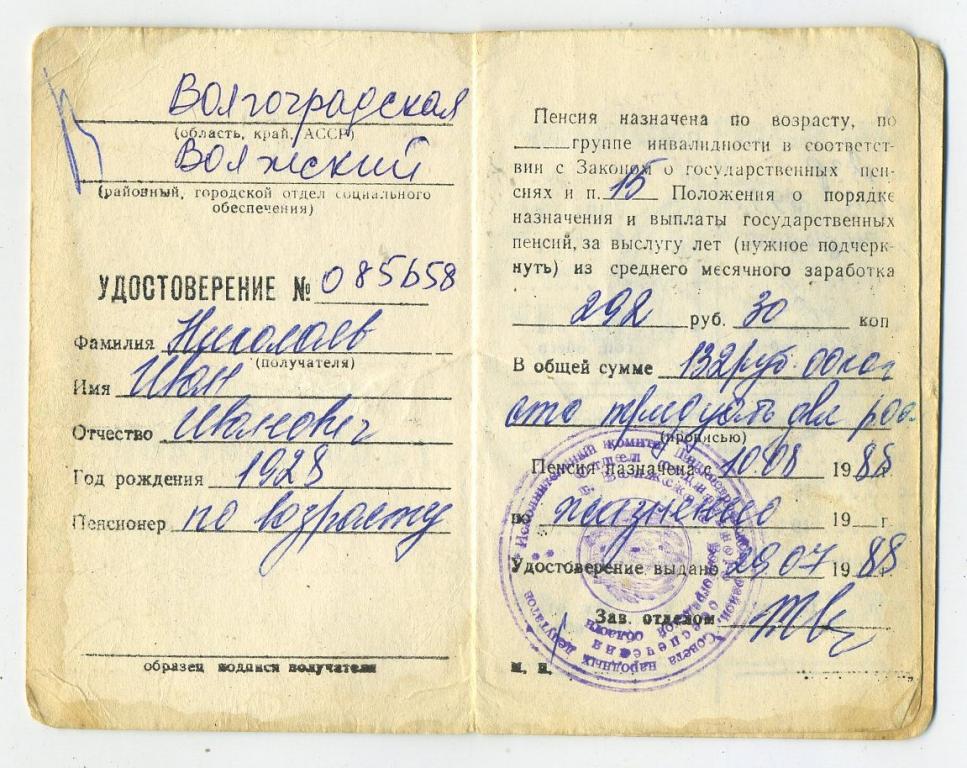 Волгоградская
(область, край, АССР)
Волжский
(районный, городской отдел социального
обеспечения)
УДОСТОВЕРЕНИЕ № 085658
Фамилия Николаев
(получателя)
Имя Иван
Отчество Иванович
Год рождения 1928
Пенсионер по возрасту
образец подписи получателя
Пенсия назначена по возрасту, по
____группе инвалидности в соответст-
вии с Законом о государственных пен-
сиях и п. 15 Положения о порядке
назначения и выплаты государственных
пенсий, за выслугу лет (нужное подчерк-
нуть) из среднего месячного заработка
292 руб. 30 коп
В общей сумме 132 руб. 00 коп
сто тридцать два руб.
(прописью)
Пенсия назначена с 10.08 1988
по пожизненно 19 г.
Удостоверение выдано 29.07 1988
Зав. отделом
М. П.